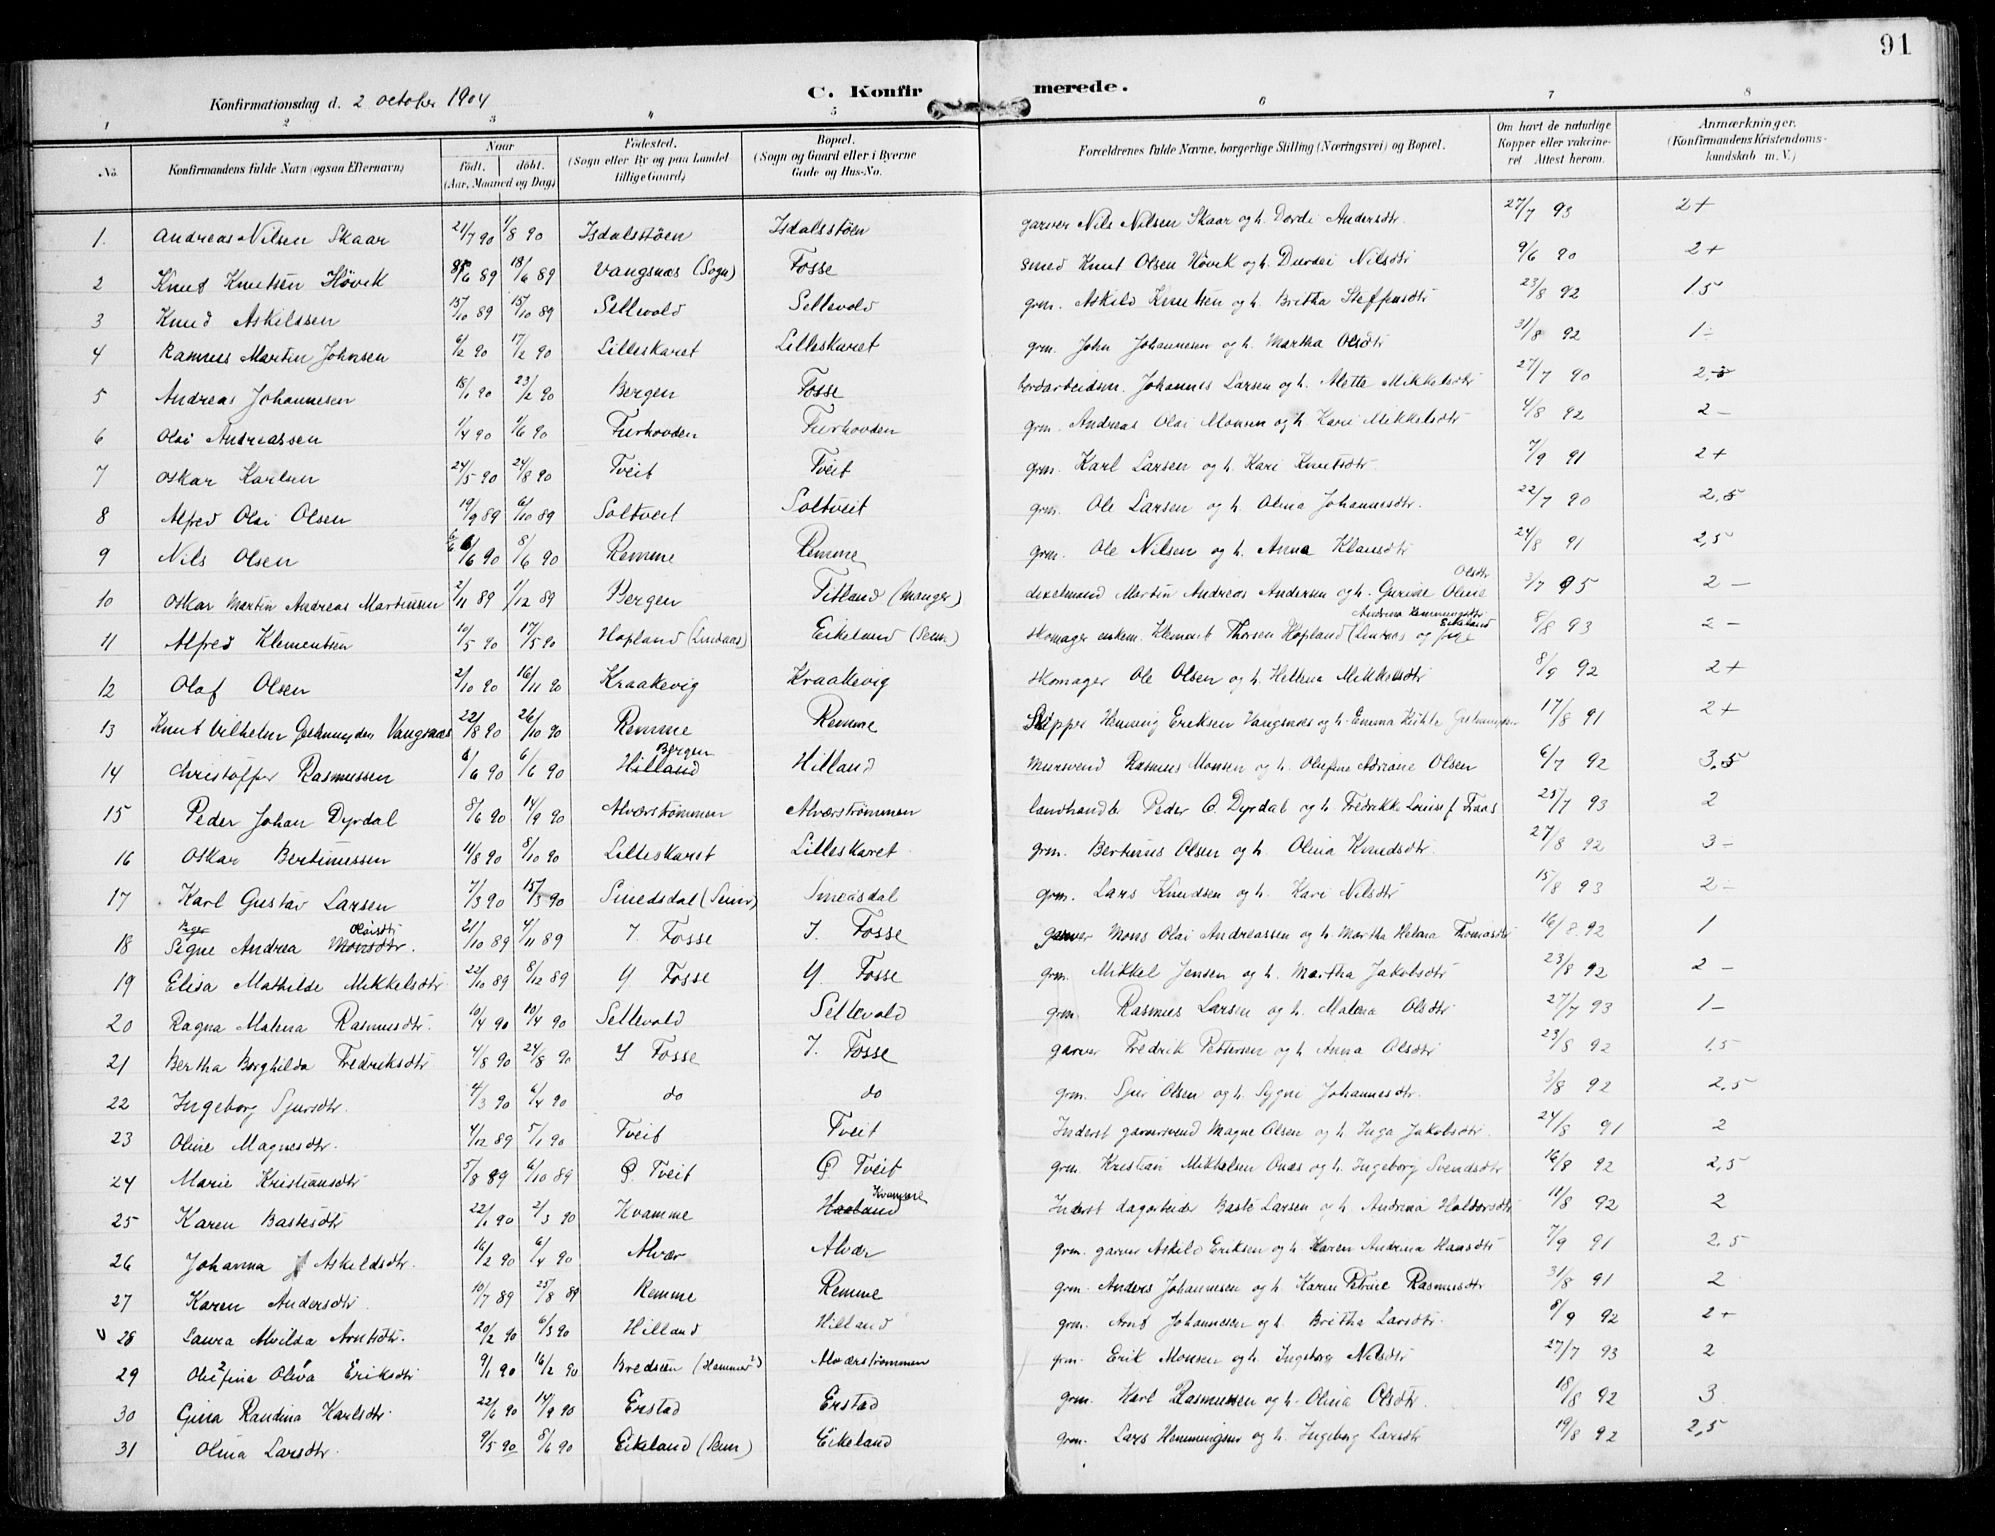 91
C. Konfirmerede.
Konfirmationsdag d. 2 october 1904
1 2 3 4 5 6 7 8
No. Konfirmandens fulde Navn (ogsaa Efternavn) Naar Födt. döbt. (Aar, Maaned og Dag) Födested. (Sogn eller By og paa Landet tillige Gaard) Bopæl. (Sogn og Gaard eller i Byerne Gade og Hus-No. Forældrenes fulde Navne, borgerlige Stilling (Næringsvei) og Bopæl. Om havt de naturlige Kopper eller vakcineret Attest herom. Anmærkninger. (Konfirmandens Kristendomskundskab m. V.)
1. Andreas Nilsen Skaar 21/7 90 1/8 90 Isdalsstøen Isdalsstøen garver Nils Nilsen Skaar og h. Dorde Andersdtr. 27/7 93 2+
2 Knut Knutsen Høvik 6 89 18/6 89 Vangsnæs (Sogn) Fosse smed Knut Olsen Høvik og h. Durdei Nilsdtr 9/6 90 2+
3 Knud Askildsen 15/10 89 15/10 89 Sellevold Sellevold grm. Askild Knutsen og h. Britha Steffensdtr 23/8 92 1.5
4 Rasmus Martin Johnsen 6/2 90 17/2 90 Lilleskaret Lilleskaret grm. John Johannesen og h. Martha Olsdtr 31/8 92 1-
5 Andreas Johannesen 18/1 90 23/2 90 Bergen Fosse Johannes Larsen og h. Mette Mikkelsdtr 27/7 90 2,5
6 Olai Andreassen 1/4 90 1/6 90 Furhovden Furhovden grm. Andreas Olai Monsen og h. Kari Mikkelsdtr 4/8 92 2-
7 Oskar Karlsen 24/5 90 24/8 90 Tveit Tveit grm. Karl Larsen og h. Kari Knutsdtr. 7/9 91 2+
8 Alfred Olai Olsen 19/9 89 6/10 89 Soltveit Soltveit grm. Ole Larsen og h. Olina Johannesdtr. 22/7 90 2,5
9 Nils Olsen 6/6 90 8/6 90 Remme Remme grm. Ole Nilsen og h. Anna Klausdtr 24/8 91 2,5
10 Oskar Martin Andreas Martinsen 2/11 89 1/12 89 Bergen Fitland (Manger) Martin Andreas Andersen og h. Gurine Oline Olsdtr 3/7 95 2-
11 Alfred Klementsen 10/5 90 17/5 90 Hopland (Lindaas) Eikeland (Seim) skomager enkem. Klement Thorsen Hopland (Lindaas og Andrina Hemmingsdtr Eikeland 8/8 93 2-
12 Olaf Olsen 2/10 90 16/11 90 Kraakevig Kraakevig skomager Ole Olsen og h. Hellena Mikkelsdtr 8/9 92 2+
13 Knut Vilhelm Gelmuyden Vangsnæs 22/8 90 26/10 90 Remme Remme Skipper Heming Eriksen Vangsnæs og h. Emma Kühle Gelmuyden 17/8 91 2+
14 Christoffer Rasmussen 6/6 90 6/6 90 Hilland Bergen Hilland mursvend Rasmus Monsen og h. Olufine Adriane Olsen 6/7 92 3,5
15 Peder Johan Dyrdal 8/6 90 14/9 90 Alværstrømmen Alværstrømmen landhandler Peder O. Dyrdal og h. Fredrikke Louise f. Traas 25/7 93 2
16 Oskar Bertinussen 11/8 90 8/10 90 Lilleskaret Lilleskaret grm. Bertinus Olsen og h. Olina Knudsdtr. 27/8 92 3-
17 Karl Gustav Larsen 7/3 90 15/3 90 Smedsdal (Seim) Smedsdal grm. Lars Knudsen og h. Kari Nilsdtr 15/8 93 2-
18 Signe Andrea Monsdtr. Olaisdtr 21/10 89 4/11 89 I. Fosse I. Fosse garver Mons Olai Andreassen og h. Martha Helena Thomasdtr 16/8 92 1
19 Elisa Mathilde Mikkelsdtr 22/10 89 8/12 89 Y. Fosse Y. Fosse grm. Mikkel Jensen og h. Martha Jakobsdtr 23/8 92 2-
20 Ragna Malena Rasmusdtr. 10/4 90 10/4 90 Sellevold Sellevold grm. Rasmus Larsen og h. Malena Olsdtr 27/7 93 1-
21 Bertha Borghilda Fredriksdtr 4/8 90 24/8 90 Y Fosse I. Fosse garver Fredrik Pettersen og h Anna Olsdtr 23/8 92 1,5
22 Ingeborg Sjursdtr. 4/3 90 6/4 90 do do grm. Sjur Olsen og h. Sygni Johannesdtr. 3/8 92 2,5
23 Oline Magnesdtr. 4/12 89 5/1 90 Tveit Tveit Inderst garversvend Magne Olsen og h Inga Jakobsdtr. 24/8 91 2
24 Marie Kristiansdtr 5/8 89 6/10 89 Ø. Tveit Ø. Tveit grm. Kristian Mikkelsen Onæs og h. Ingeborg Svendsdtr 16/8 92 2,5
25 Karen Bastesdtr 22/1 90 2/3 90 Kvamme Haaland Kvamme Inderst dagarbeider Baste Larsen og h Andrina Haldorsdtr 11/8 92 2
26 Johanna Askildsdtr. 16/2 90 6/4 90 Alvær Alvær grm. garver Askild Eriksen og h. Karen Andrina Hansdtr 7/9 91 2,5
27 Karen Andersdtr. 10/7 89 25/8 89 Remme Remme grm. Anders Johannesen og h Karen Petrine Rasmusdtr 31/8 91 2
v 28 Laura Alvilda Arntsdtr. 20/2 90 6/3 90 Hilland Hilland grm. Arnt Johannesen og h. Britha Larsdtr. 8/9 92 2+
29 Oliva Eriksdtr 9/1 90 16/2 90 Bredseen (Hammer) Alværstrømmen grm. Erik Monsen og h. Ingeborg Nilsdtr 27/7 93 2
30 Gina Randina Karlsdtr. 22/6 90 14/9 90 Erstad Erstad grm. Karl Rasmussen og h. Olina Olsdtr. 18/8 92 3
31 Olina Larsdtr. 9/5 90 8/6 90 Eikeland (Seim) Eikeland grm. Lars Hemmingsen og h. Ingeborg Larsdtr 19/8 92 2,5